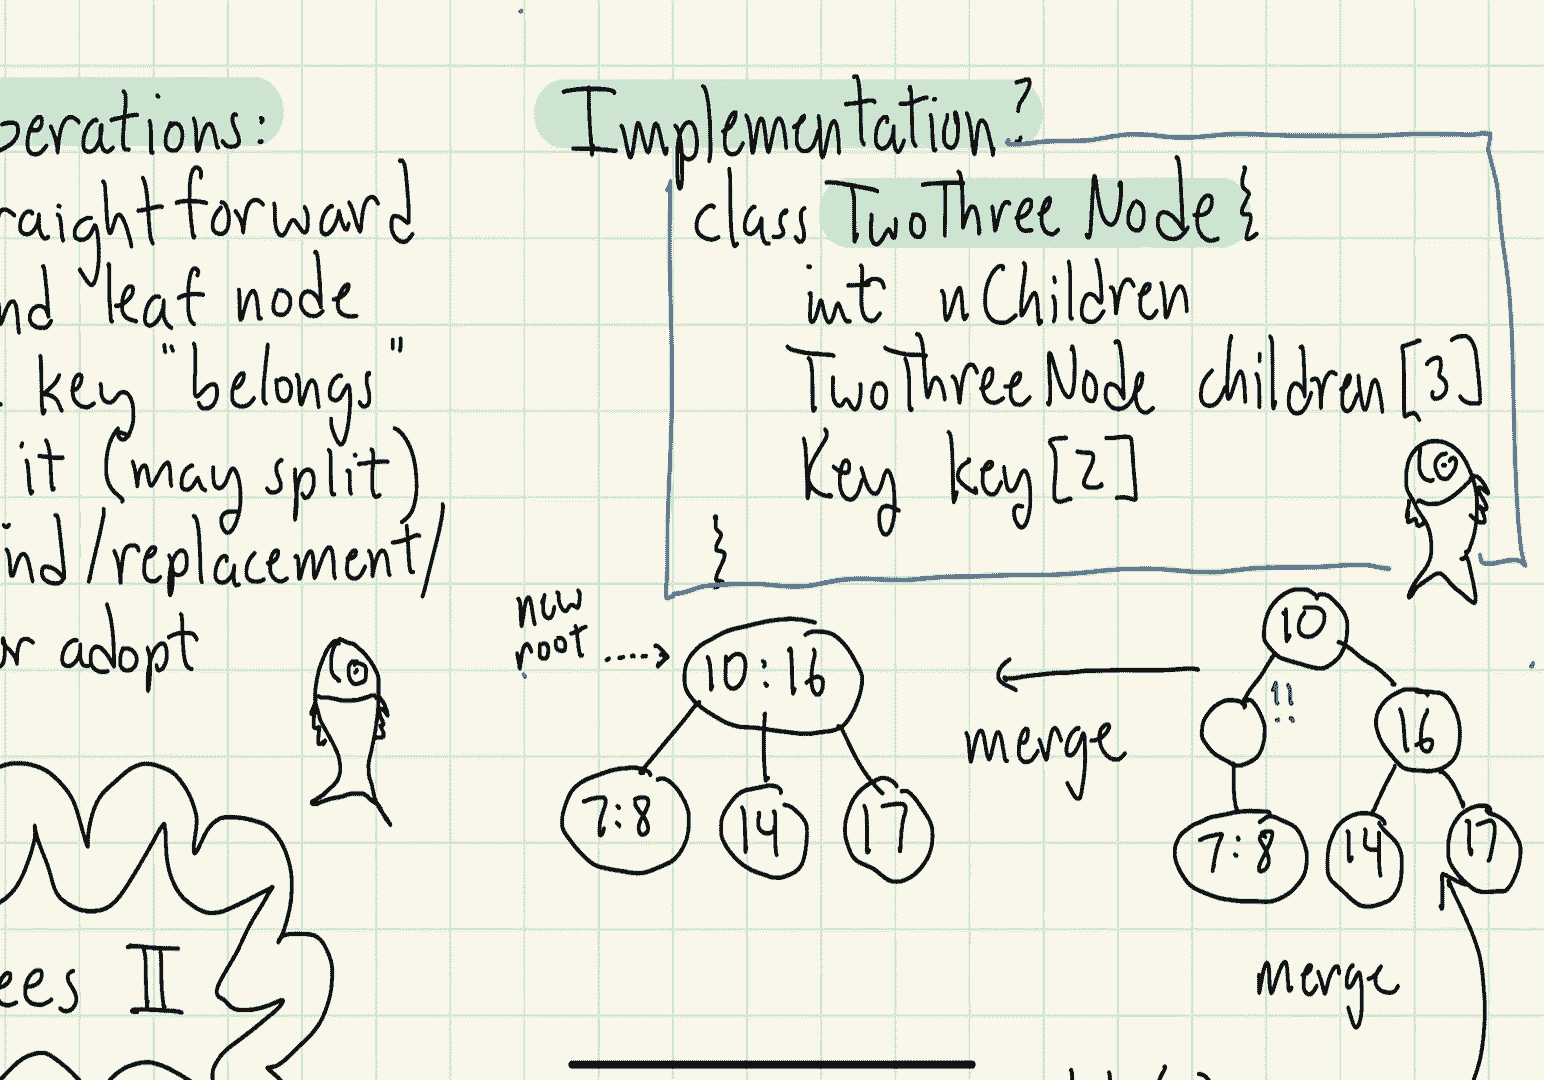 perations:
raightforward
nd leaf node
key "belongs"
it (may split)
ind/replacement/
or adopt
ees II
Implementation?
class TwoThreeNode {
int nChildren
TwoThreeNode children[3]
Key key[2]
}
new
root
10:16
7:8
14
17
merge
10
!!
16
7:8
14
17
merge